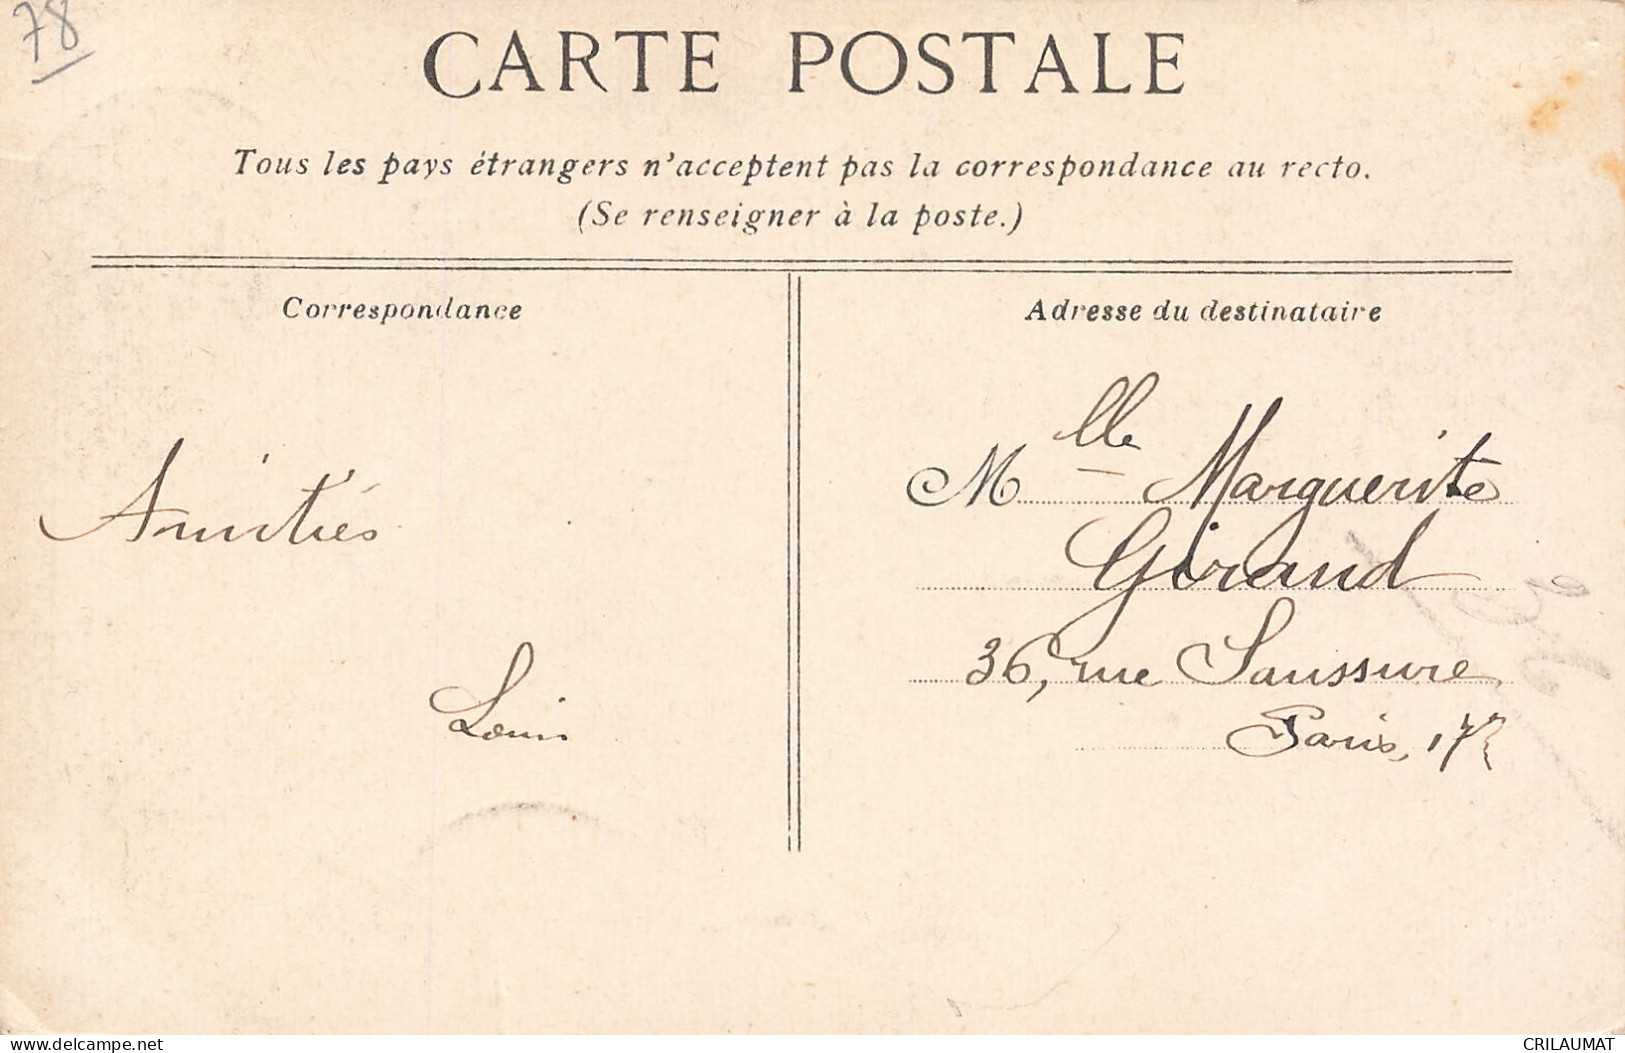 78
CARTE POSTALE
Tous les pays étrangers n'acceptent pas la correspondance au recto.
(Se renseigner à la poste.)
Correspondance
Amitiés
Louis
Adresse du destinataire
Mlle Marguerite
Giraud
36, rue Saussure
Paris, 17
www.delcampe.net
CRILAUMAT